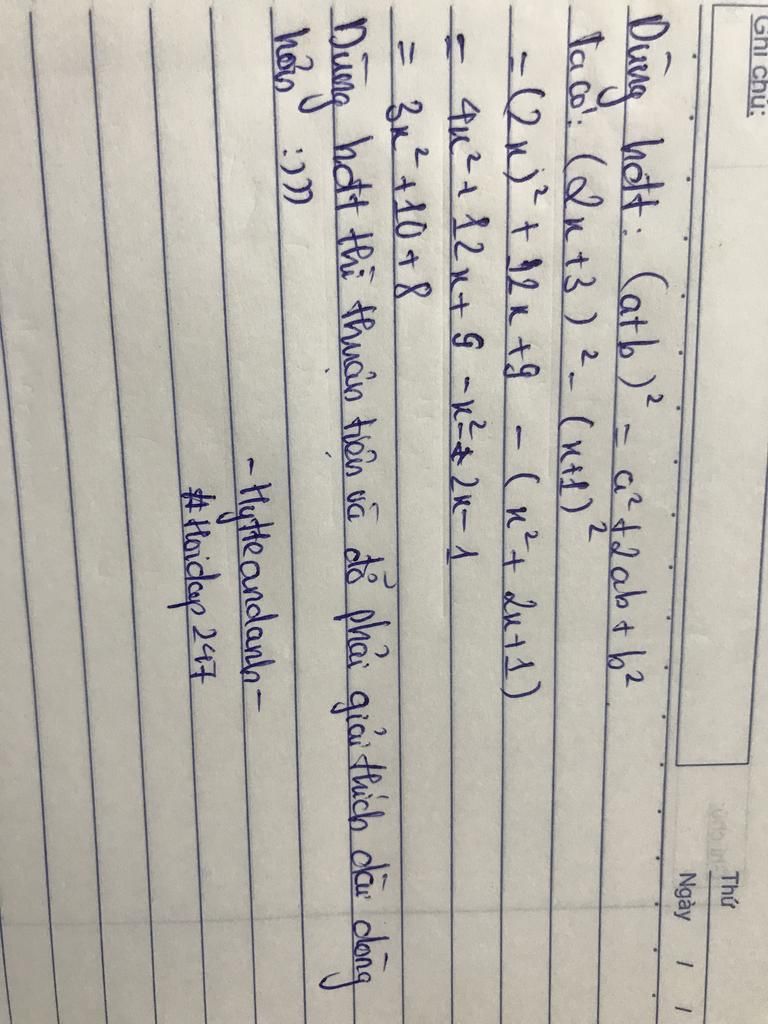 Ghi chú:
Thứ
Ngày / /
Dùng hđt: (a+b)² = a²+2ab+b²
Ta có: (2x+3)² - (x+1)²
= (2x)² + 12x + 9 - (x² + 2x+1)
= 4x² + 12x + 9 - x² - 2x - 1
= 3x² + 10 + 8
Dùng hđt thì thuận tiện và đỡ phải giải thích dài dòng
hơn :)))
- Hytteandanh -
#Hoidap247